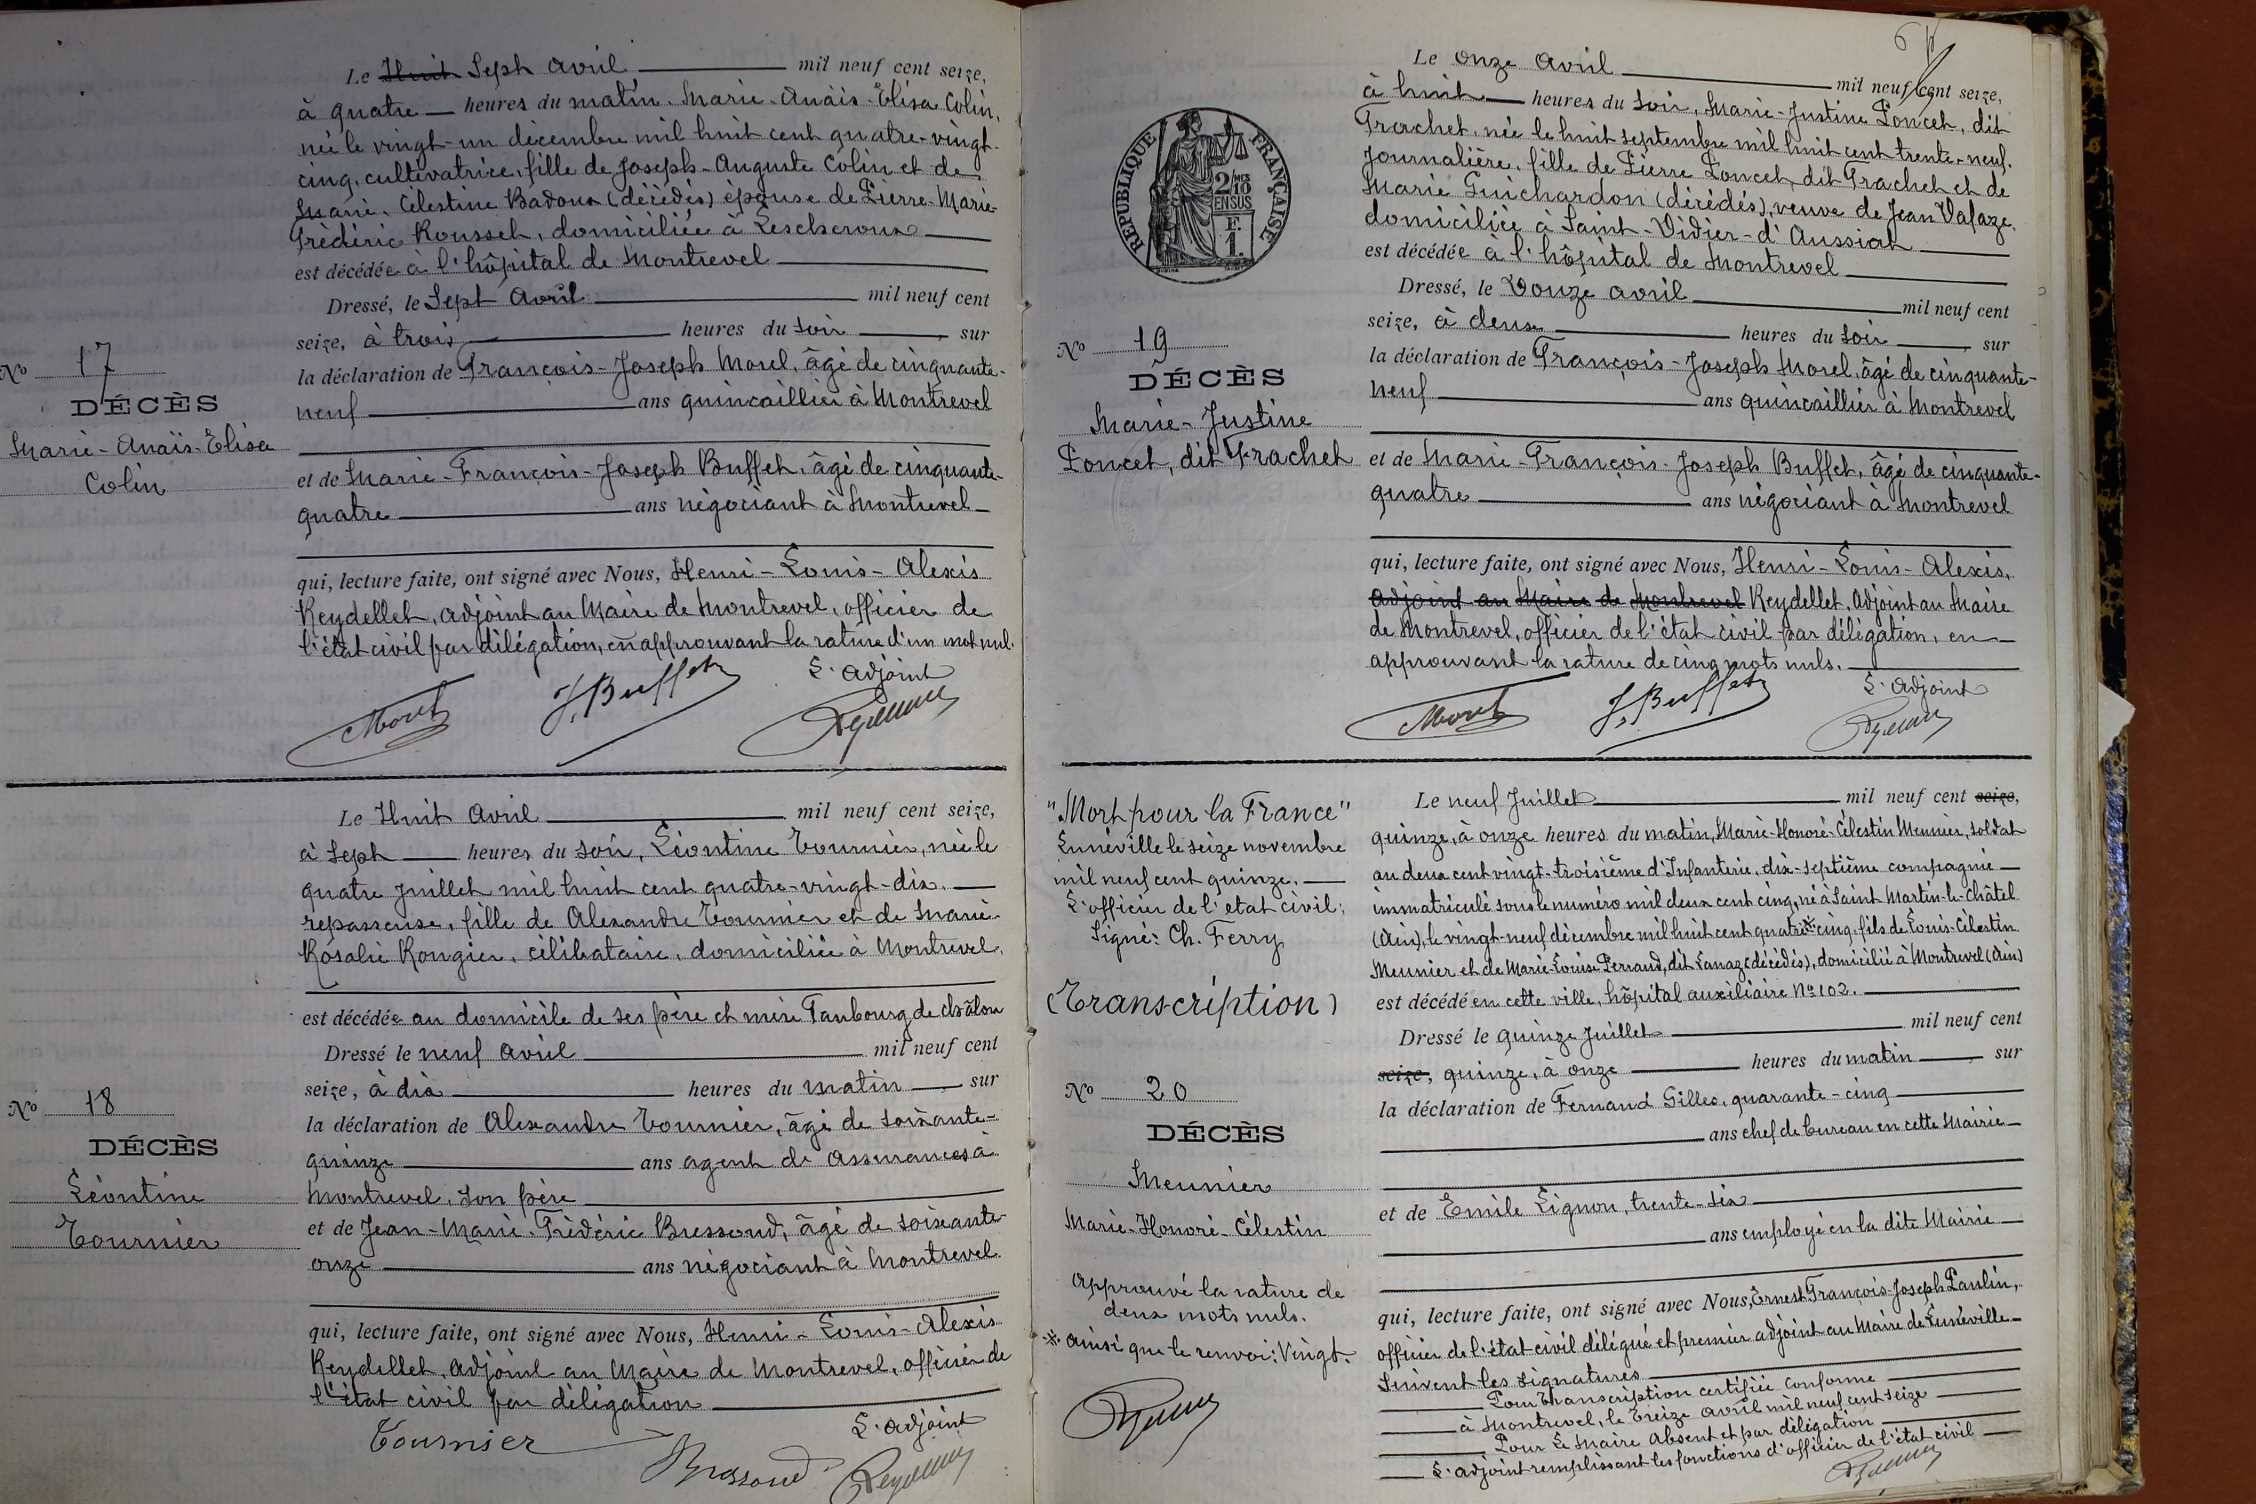 Le Huit Sept Avril mil neuf cent seize,
à quatre heures du matin. Marie-Anaïs-Elisa Colin,
née le vingt-un décembre mil huit cent quatre-vingt-
cinq, cultivatrice, fille de Joseph-Auguste Colin et de
Marie-Célestine Badoux (décédés) épouse de Pierre-Marie-
Frédéric Roussel, domiciliée à Lescheroux
est décédée à l'hôpital de Montrevel
Dressé, le Sept Avril mil neuf cent
seize, à trois heures du soir, sur
la déclaration de François-Joseph Morel, âgé de cinquante-
neuf ans quincaillier à Montrevel
et de Marie-François-Joseph Buffet, âgé de cinquante-
quatre ans négociant à Montrevel
qui, lecture faite, ont signé avec Nous, Henri-Louis-Alexis
Reydellet, Adjoint au Maire de Montrevel, officier de
l'état civil par délégation, en approuvant la rature d'un mot nul.
L'adjoint
Morel
J. Buffet
Reydellet
No 17
DÉCÈS
Marie-Anaïs-Elisa
Colin
Le Huit Avril mil neuf cent seize,
à Sept heures du soir, Léontine Tournier, née le
quatre Juillet mil huit cent quatre-vingt-dix,
repasseuse, fille de Alexandre Tournier et de Marie-
Rosalie Rongier, célibataire, domiciliée à Montrevel,
est décédée au domicile de ses père et mère Faubourg de châlon
Dressé le neuf Avril mil neuf cent
seize, à dix heures du matin, sur
la déclaration de Alexandre Tournier, âgé de soixante-
quinze ans agent de Assurances à
Montrevel, son père
et de Jean-Marie-Frédéric Bressoud, âgé de soixante-
onze ans négociant à Montrevel
qui, lecture faite, ont signé avec Nous, Henri-Louis-Alexis
Reydellet, Adjoint au Maire de Montrevel, officier de
l'état civil par délégation
L'adjoint
Tournier
Bressoud
Reydellet
No 18
DÉCÈS
Léontine
Tournier
Le Onze Avril mil neuf cent seize,
à huit heures du soir, Marie-Justine Poncet, dit
Frachet, née le huit septembre mil huit cent trente-neuf,
Journalière, fille de Pierre Poncet, dit Frachet et de
Marie Guichardon (décédés), veuve de Jean Vafaze,
domiciliée à Saint-Didier-d'Aussiat
est décédée à l'hôpital de Montrevel
Dressé, le Douze avril mil neuf cent
seize, à deux heures du soir, sur
la déclaration de François-Joseph Morel, âgé de cinquante-
neuf ans quincaillier à Montrevel
et de Marie-François-Joseph Buffet, âgé de cinquante-
quatre ans négociant à Montrevel
qui, lecture faite, ont signé avec Nous, Henri-Louis-Alexis,
Adjoint au Maire de Montrevel Reydellet, Adjoint au Maire
de Montrevel, officier de l'état civil par délégation, en
approuvant la rature de cinq mots nuls.
L'adjoint
Morel
J. Buffet
Reydellet
RÉPUBLIQUE FRANÇAISE
2/10 MES
EN SUS
F.
1.
No 19
DÉCÈS
Marie-Justine
Poncet, dit Frachet
Le neuf Juillet mil neuf cent seize,
quinze, à onze heures du matin, Marie-Honoré-Célestin Meunier, soldat
au deux cent vingt-troisième d'Infanterie, dix-septième compagnie
immatriculé sous le numéro mil deux cent cinq, né à Saint Martin-le-châtel
(Ain), le vingt-neuf décembre mil huit cent quatre※cinq, fils de Louis-Célestin
Meunier et de Marie-Louise Perraud, dit Lanaz (décédés), domicilié à Montrevel (Ain)
est décédé en cette ville, hôpital auxiliaire No 102.
Dressé le quinze Juillet mil neuf cent
seize, quinze, à onze heures du matin, sur
la déclaration de Fernand Gilles, quarante-cinq
ans chef de bureau en cette Mairie
et de Emile Lignon, trente-six
ans employé en la dite Mairie
qui, lecture faite, ont signé avec Nous, Ernest François-Joseph Paulin,
officier de l'état civil délégué et premier adjoint au Maire de Lunéville
Suivent les signatures
Pour transcription certifiée conforme
à Montrevel, le treize avril mil neuf cent seize
Pour Le Maire Absent et par délégation
L'adjoint remplissant les fonctions d'officier de l'état civil
Reydellet
"Mort pour la France"
Lunéville le seize novembre
mil neuf cent quinze.
L'officier de l'état civil:
Signé: Ch. Ferry
(Transcription)
No 20
DÉCÈS
Meunier
Marie-Honoré-Célestin
Approuvé la rature de
deux mots nuls.
※ ainsi que le renvoi: Vingt.
Reydellet